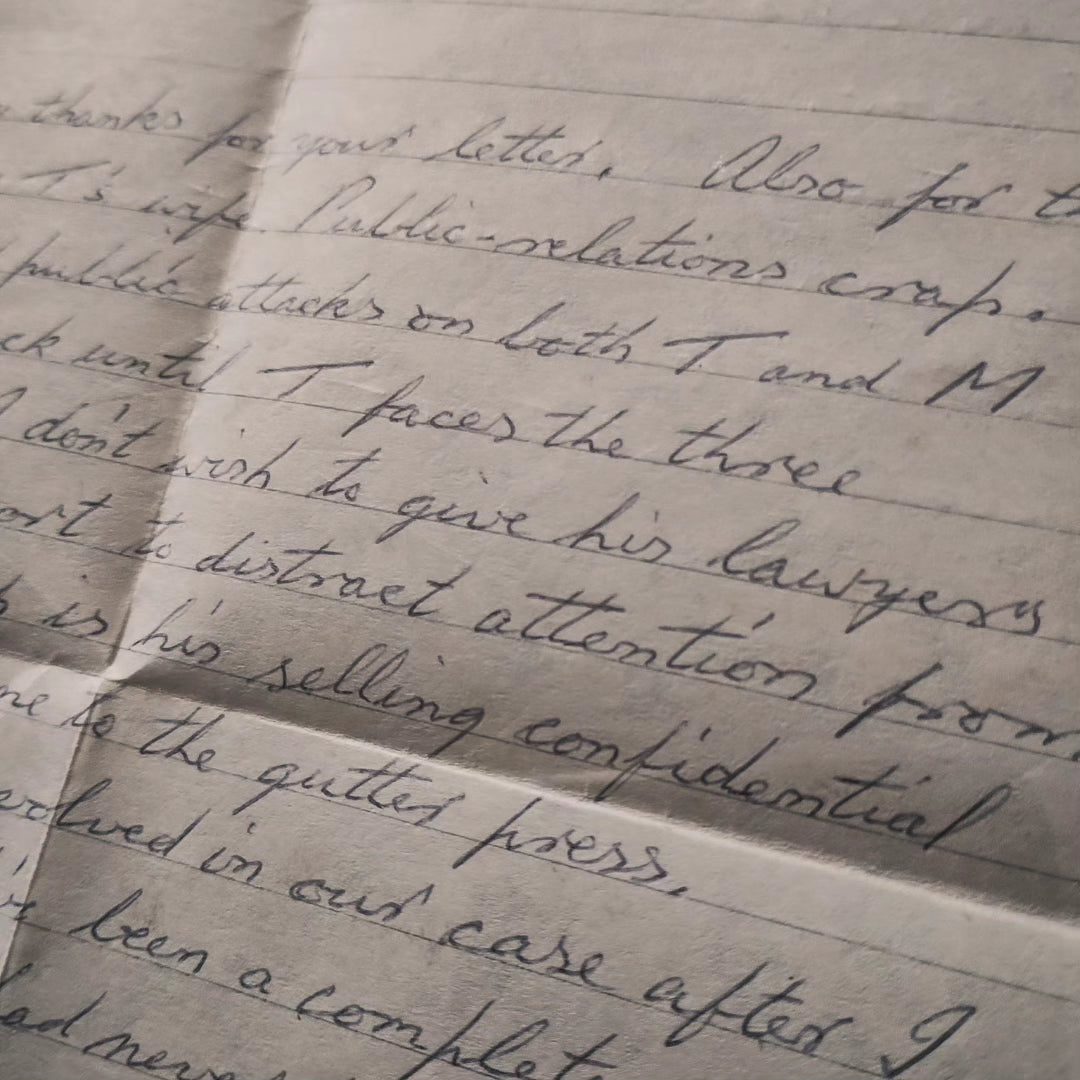 thanks for your letter. Also for th
T's wife. Public-relations crap.
public attacks on both T and M
ck until T faces the three
I don't wish to give his lawyers
ort to distract attention from
is his selling confidential
me to the gutter press.
volved in our case after I
been a complet
ad never